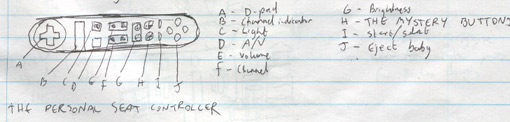 A - D-pad
B - Channel indicator
C - Light
D - A/V
E - Volume
F - Channel
G - Brightness
H - THE MYSTERY BUTTONS
I - Start/Select
J - Eject baby
A
B
C
D
E
F
G
H
I
J
THE PERSONAL SEAT CONTROLLER